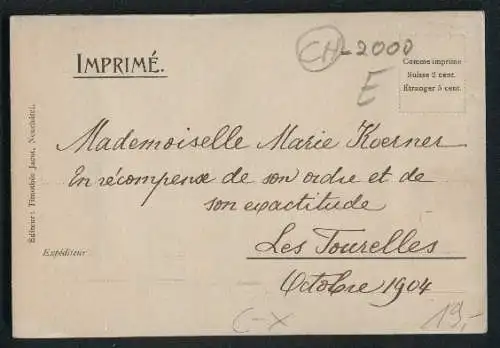 IMPRIMÉ.
CH-2000
E
Comme imprimé
Suisse 2 cent.
Étranger 5 cent.
Mademoiselle Marie Koerner
En récompense de son ordre et de
son exactitude
Les Tourelles
Octobre 1904
Expéditeur
Editeur: Timothée Jacot, Neuchâtel.
C-X
19,-